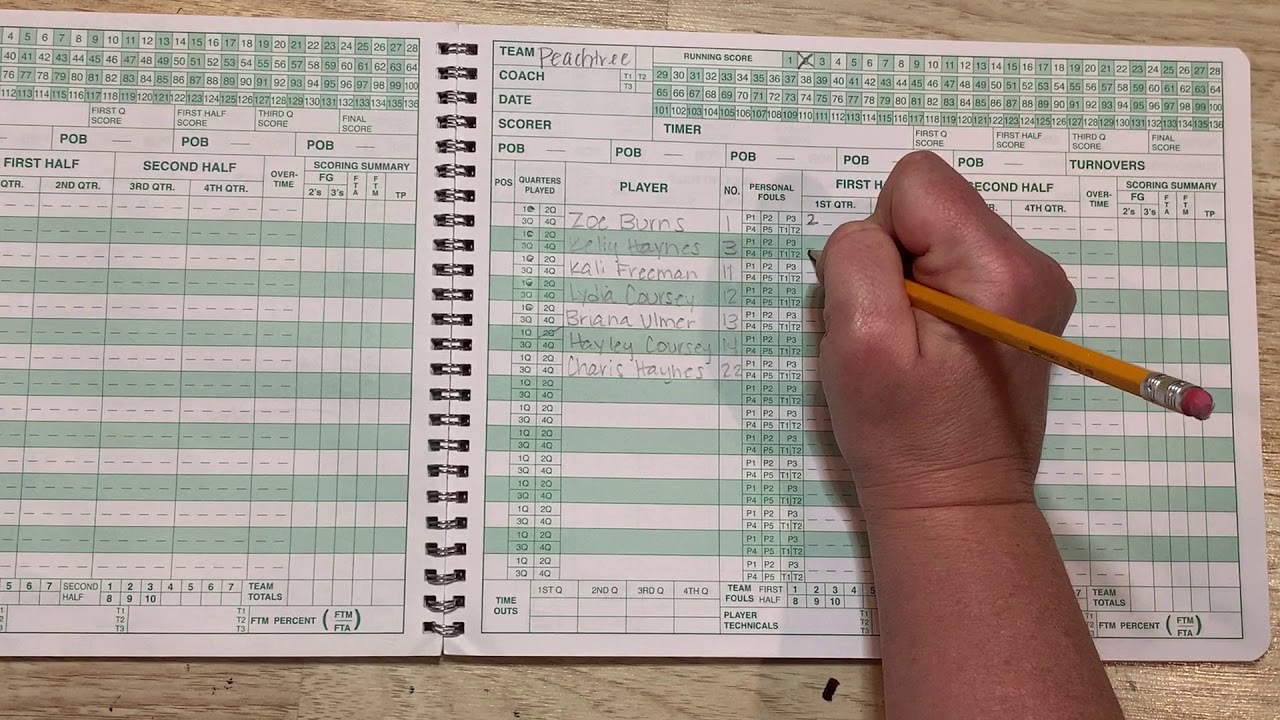 4 5 6 7 8 9 10 11 12 13 14 15 16 17 18 19 20 21 22 23 24 25 26 27 28
40 41 42 43 44 45 46 47 48 49 50 51 52 53 54 55 56 57 58 59 60 61 62 63 64
76 77 78 79 80 81 82 83 84 85 86 87 88 89 90 91 92 93 94 95 96 97 98 99 100
112 113 114 115 116 117 118 119 120 121 122 123 124 125 126 127 128 129 130 131 132 133 134 135 136
FIRST Q SCORE FIRST HALF SCORE THIRD Q SCORE FINAL SCORE
POB POB POB
FIRST HALF SECOND HALF OVER-TIME SCORING SUMMARY
QTR. 2ND QTR. 3RD QTR. 4TH QTR. FG 2's 3's FTA FTM TP
5 6 7 SECOND HALF 1 2 3 4 5 6 7 TEAM TOTALS
8 9 10
T1 T2 T3 T1 T2 T3 FTM PERCENT (FTM/FTA)
TEAM Peachtree RUNNING SCORE 1 2 3 4 5 6 7 8 9 10 11 12 13 14 15 16 17 18 19 20 21 22 23 24 25 26 27 28
COACH T1 T2 T3 29 30 31 32 33 34 35 36 37 38 39 40 41 42 43 44 45 46 47 48 49 50 51 52 53 54 55 56 57 58 59 60 61 62 63 64
DATE 65 66 67 68 69 70 71 72 73 74 75 76 77 78 79 80 81 82 83 84 85 86 87 88 89 90 91 92 93 94 95 96 97 98 99 100
101 102 103 104 105 106 107 108 109 110 111 112 113 114 115 116 117 118 119 120 121 122 123 124 125 126 127 128 129 130 131 132 133 134 135 136
SCORER TIMER FIRST Q SCORE FIRST HALF SCORE THIRD Q SCORE FINAL SCORE
POB POB POB POB POB TURNOVERS
POS QUARTERS PLAYED PLAYER NO. PERSONAL FOULS FIRST SECOND HALF OVER-TIME SCORING SUMMARY
1ST QTR. 4TH QTR. FG 2's 3's FTA FTM TP
1Q 2Q 3Q 4Q Zoe Burns 1 P1 P2 P3 P4 P5 T1 T2 2
1Q 2Q 3Q 4Q Kelly Haynes 3 P1 P2 P3 P4 P5 T1 T2
1Q 2Q 3Q 4Q Kali Freeman 11 P1 P2 P3 P4 P5 T1 T2
1Q 2Q 3Q 4Q Lydia Coursey 12 P1 P2 P3 P4 P5 T1 T2
1Q 2Q 3Q 4Q Briana Ulmer 13 P1 P2 P3 P4 P5 T1 T2
1Q 2Q 3Q 4Q Hayley Coursey 14 P1 P2 P3 P4 P5 T1 T2
1Q 2Q 3Q 4Q Charis Haynes 22 P1 P2 P3 P4 P5 T1 T2
1Q 2Q 3Q 4Q P1 P2 P3 P4 P5 T1 T2
1Q 2Q 3Q 4Q P1 P2 P3 P4 P5 T1 T2
1Q 2Q 3Q 4Q P1 P2 P3 P4 P5 T1 T2
1Q 2Q 3Q 4Q P1 P2 P3 P4 P5 T1 T2
1Q 2Q 3Q 4Q P1 P2 P3 P4 P5 T1 T2
1Q 2Q 3Q 4Q P1 P2 P3 P4 P5 T1 T2
1Q 2Q 3Q 4Q P1 P2 P3 P4 P5 T1 T2
1Q 2Q 3Q 4Q P1 P2 P3 P4 P5 T1 T2
TIME OUTS 1ST Q 2ND Q 3RD Q 4TH Q TEAM FOULS FIRST HALF 1 2 3 4 5 7 TEAM TOTALS
8 9 10
PLAYER TECHNICALS T1 T2 T3 T1 T2 T3 FTM PERCENT (FTM/FTA)